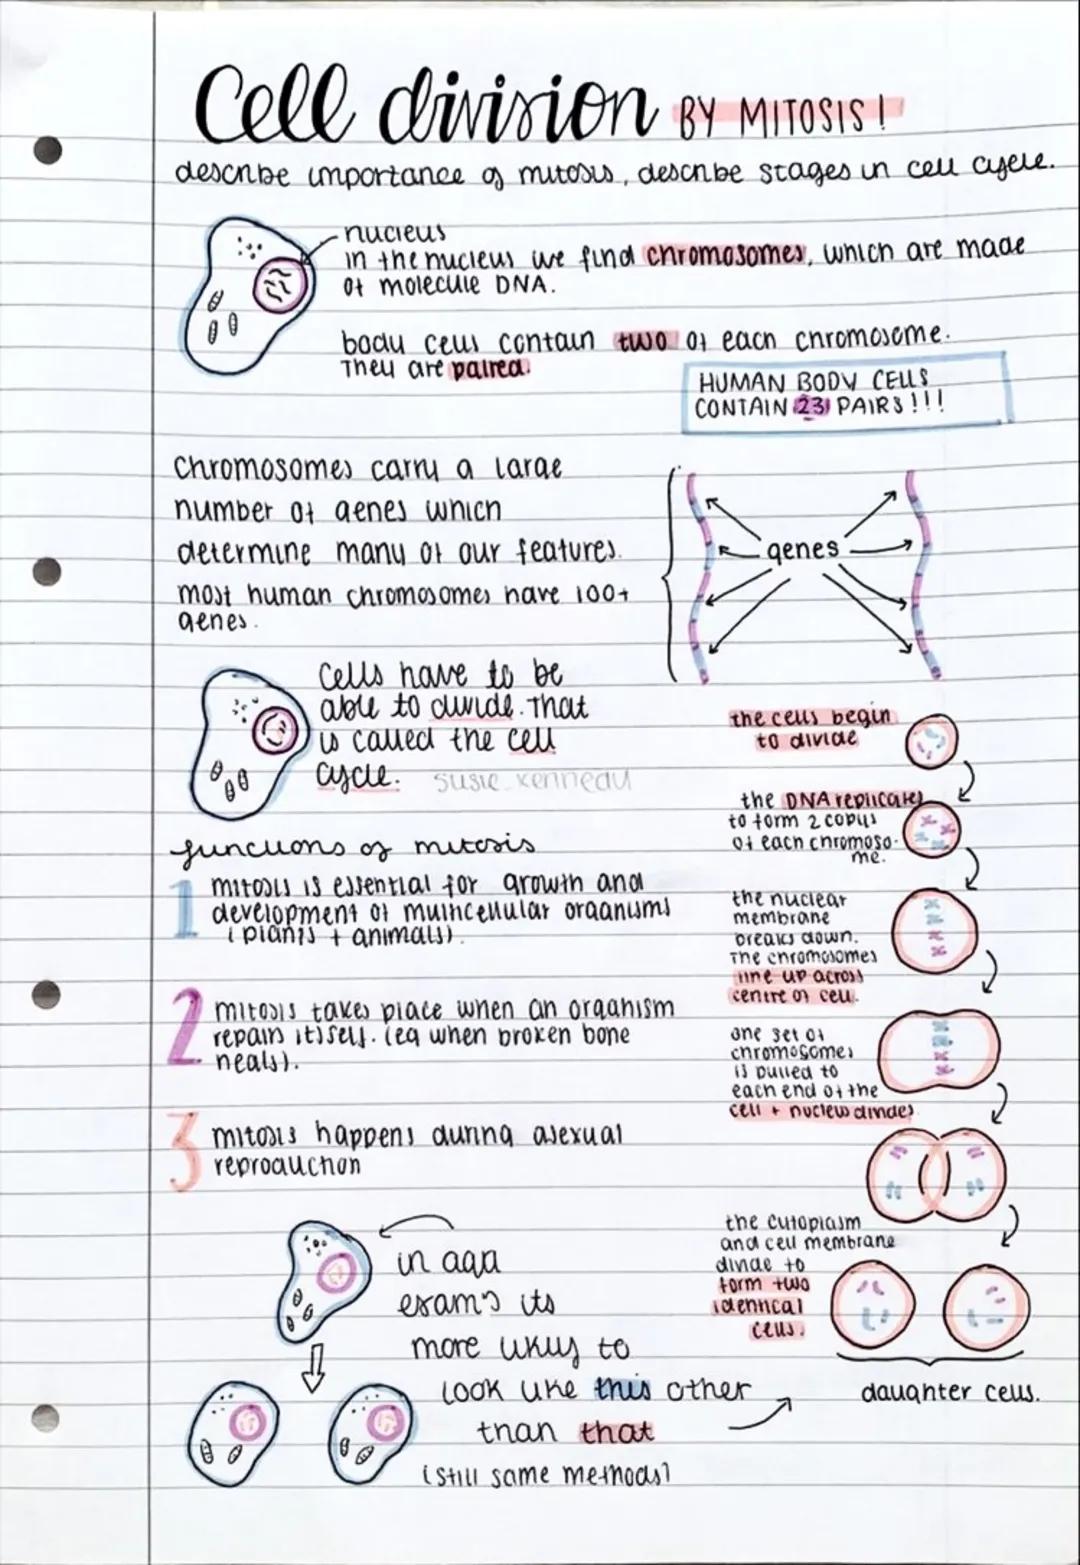 Cell division BY MITOSIS!
describe importance of mitosis, describe stages in cell cycle.
nucleus
in the nucleus we find chromosomes, which are made
of molecule DNA.
body cells contain two of each chromosome.
They are paired.
HUMAN BODY CELLS
CONTAIN 23 PAIRS!!!
Chromosomes carry a large
number of genes which
determine many of our features.
most human chromosomes have 100+
genes.
genes
Cells have to be
able to divide. That
is called the cell
cycle.
the cells begin
to divide
the DNA replicates
to form 2 copies
of each chromoso-
me.
functions of mitosis
1 mitosis is essential for growth and
development of multicellular organisms
(plants + animals).
the nuclear
membrane
breaks down.
The chromosomes
line up across
centre of cell.
2 mitosis takes place when an organism
repairs itself. (eg when broken bone
heals).
one set of
chromosomes
is pulled to
each end of the
cell + nucleus divides
3 mitosis happens during asexual
reproduction
the cytoplasm
and cell membrane
divide to
form two
identical
cells.
daughter cells.
in aqa
exam's its
more likely to
look like this other
than that
(still same methods)